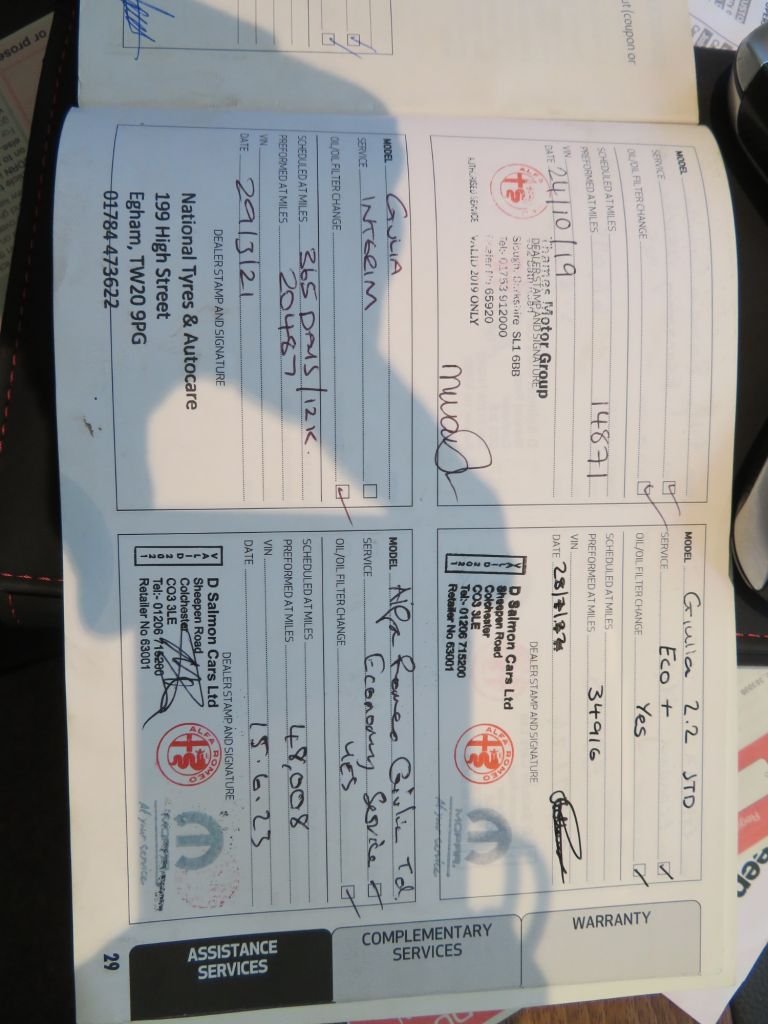 t (coupon or
or prose
MODEL
SERVICE
OIL/OIL FILTER CHANGE
SCHEDULED AT MILES
PREFORMED AT MILES 14871
VIN
DATE 24/10/19
DEALER STAMP AND SIGNATURE
Thames Motor Group
Slough, Berkshire SL1 6BB
Tel: 01753 912000
65920
VALID 2019 ONLY
ALFA
MODEL Giulia 2.2 JTD
SERVICE Eco +
OIL/OIL FILTER CHANGE Yes
SCHEDULED AT MILES
PREFORMED AT MILES 34916
VIN
DATE
DEALER STAMP AND SIGNATURE
D Salmon Cars Ltd
Sheepen Road
Colchester
CO3 3LE
Tel:- 01206 715200
Retailer No 63001
VALID 2021
ALFA ROMEO
MOPAR
At your service
MODEL GIULIA
SERVICE INTERIM
OIL/OIL FILTER CHANGE
SCHEDULED AT MILES 365 DAYS / 12K.
PREFORMED AT MILES 20487
VIN
DATE 29/3/21
DEALER STAMP AND SIGNATURE
National Tyres & Autocare
199 High Street
Egham, TW20 9PG
01784 473622
MODEL Alfa Romeo Giulia Td
SERVICE Economy Service +
OIL/OIL FILTER CHANGE YES
SCHEDULED AT MILES
PREFORMED AT MILES 48,008
VIN
DATE 15.6.23
DEALER STAMP AND SIGNATURE
D Salmon Cars Ltd
Sheepen Road
Colchester
CO3 3LE
Tel:- 01206 715200
Retailer No 63001
VALID 2021
ALFA ROMEO
At your service
WARRANTY
COMPLEMENTARY
SERVICES
ASSISTANCE
SERVICES
29